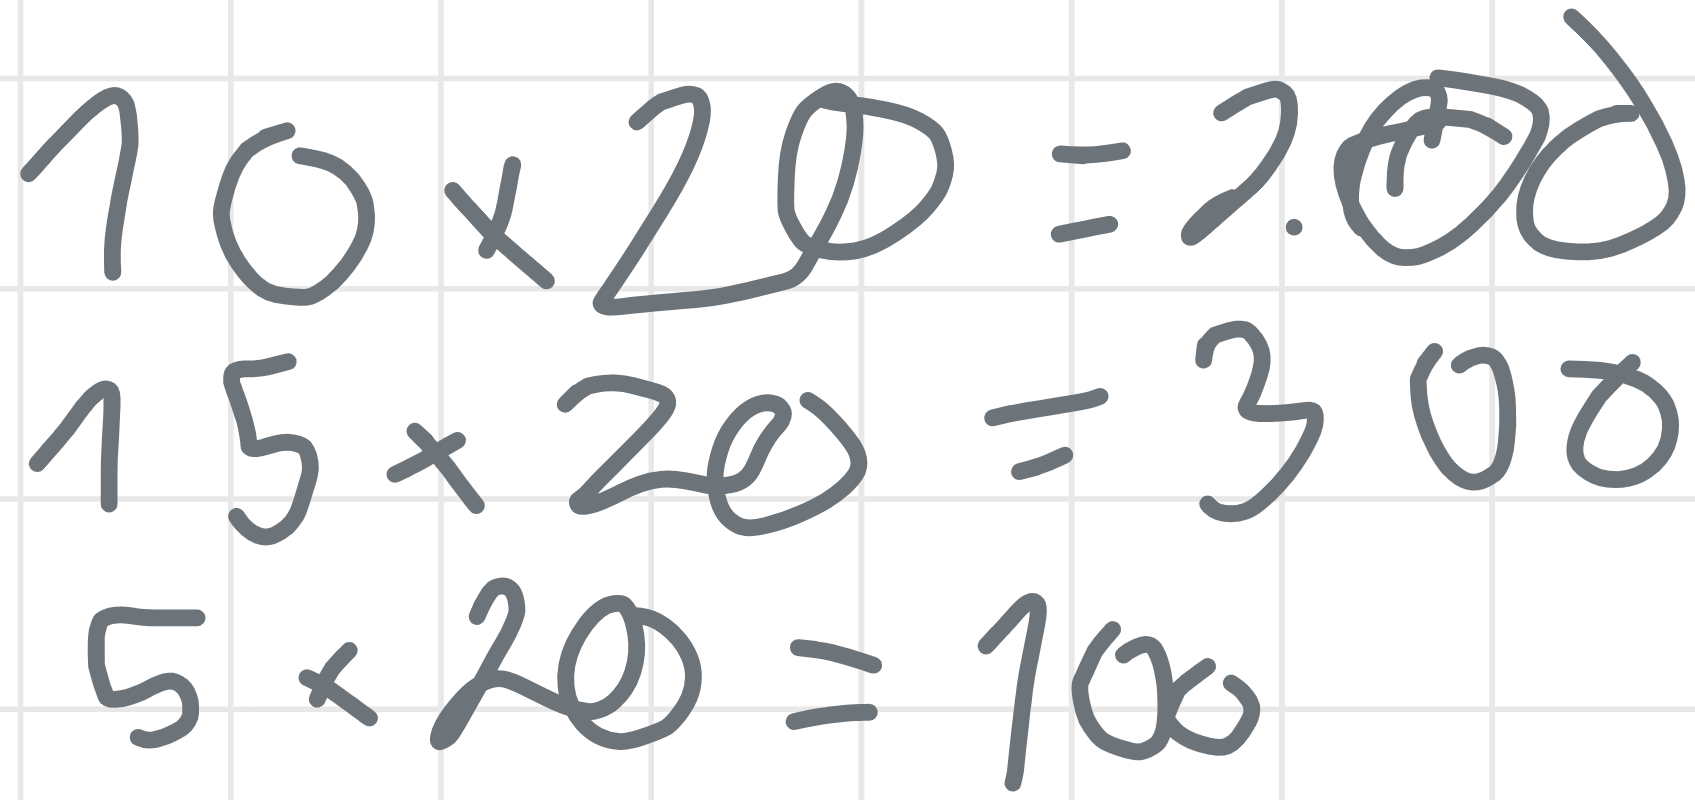 10 x 20 = 2.00
15 x 20 = 300
5 x 20 = 100